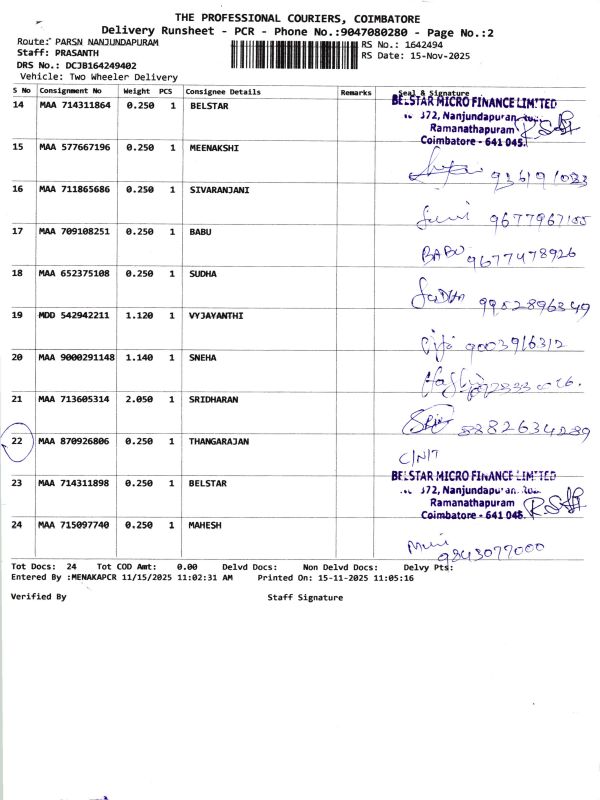 THE PROFESSIONAL COURIERS, COIMBATORE
Delivery Runsheet - PCR - Phone No.:9047080280 - Page No.:2
Route: PARSN NANJUNDAPURAM
RS No.: 1642494
Staff: PRASANTH
RS Date: 15-Nov-2025
DRS No.: DCJB164249402
Vehicle: Two Wheeler Delivery
S No Consignment No Weight PCS Consignee Details Remarks Seal & Signature
14 MAA 714311864 0.250 1 BELSTAR
BELSTAR MICRO FINANCE LIMITED
372, Nanjundapuran
Ramanathapuram
Coimbatore - 641 045.
15 MAA 577667196 0.250 1 MEENAKSHI
9361971083
16 MAA 711865686 0.250 1 SIVARANJANI
9677967155
17 MAA 709108251 0.250 1 BABU
BABU 9677478926
18 MAA 652375108 0.250 1 SUDHA
SUDHA 9952896349
19 MDD 542942211 1.120 1 VYJAYANTHI
9003916312
20 MAA 9000291148 1.140 1 SNEHA
21 MAA 713605314 2.050 1 SRIDHARAN
8882634289
22 MAA 870926806 0.250 1 THANGARAJAN
C/N/T
23 MAA 714311898 0.250 1 BELSTAR
BELSTAR MICRO FINANCE LIMITED
372, Nanjundapuran
Ramanathapuram
Coimbatore - 641 045.
24 MAA 715097740 0.250 1 MAHESH
9843077000
Tot Docs: 24 Tot COD Amt: 0.00 Delvd Docs: Non Delvd Docs: Delvy Pts:
Entered By :MENAKAPCR 11/15/2025 11:02:31 AM Printed On: 15-11-2025 11:05:16
Verified By Staff Signature